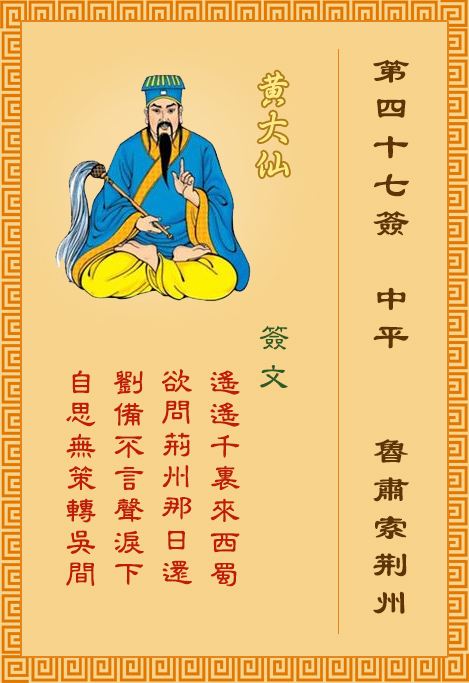 第四十七簽 中平 魯肅索荆州
黄大仙
簽文
遙遙千裏來西蜀
欲問荊州那日還
劉備不言聲淚下
自思無策轉吳間